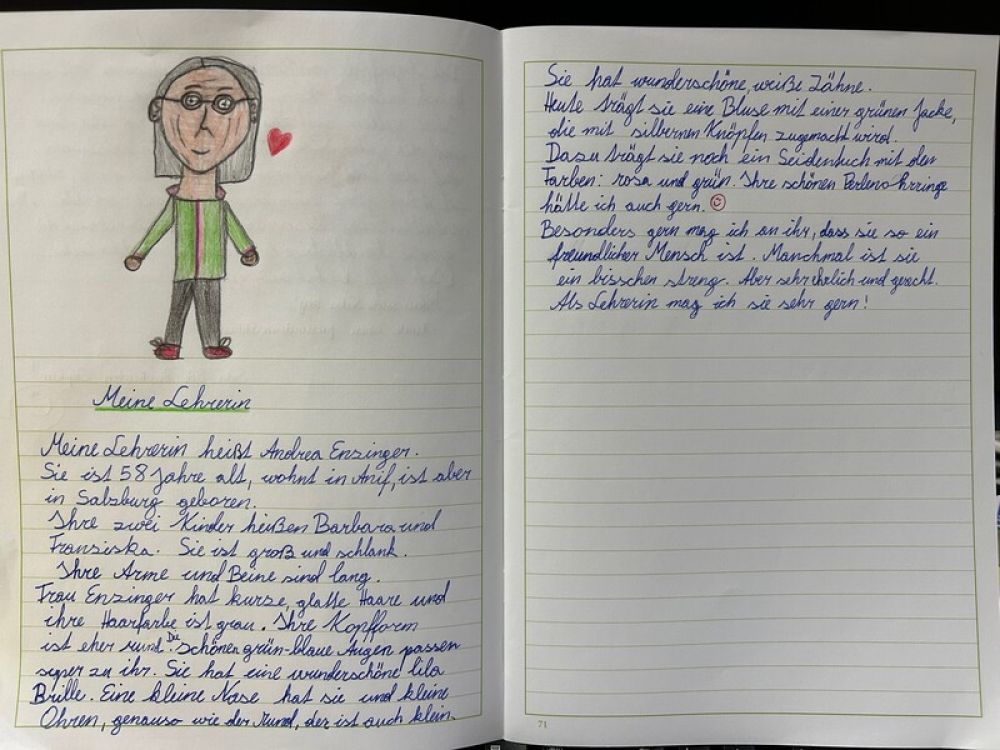 Meine Lehrerin
Meine Lehrerin heißt Andrea Enzinger.
Sie ist 58 Jahre alt, wohnt in Anif, ist aber
in Salzburg geboren.
Ihre zwei Kinder heißen Barbara und
Franziska. Sie ist groß und schlank.
Ihre Arme und Beine sind lang.
Frau Enzinger hat kurze, glatte Haare und
ihre Haarfarbe ist grau. Ihre Kopfform
ist eher rund. Die schönen grün-blaue Augen passen
super zu ihr. Sie hat eine wunderschöne lila
Brille. Eine kleine Nase hat sie und kleine
Ohren, genauso wie der Mund, der ist auch klein.
Sie hat wunderschöne, weiße Zähne.
Heute trägt sie eine Bluse mit einer grünen Jacke,
die mit silbernen Knöpfen zugemacht wird.
Dazu trägt sie noch ein Seidentuch mit den
Farben: rosa und grün. Ihre schönen Perlenohrringe
hätte ich auch gern.
Besonders gern mag ich an ihr, dass sie so ein
freundlicher Mensch ist. Manchmal ist sie
ein bisschen streng. Aber sehr ehrlich und gerecht.
Als Lehrerin mag ich sie sehr gern!
71